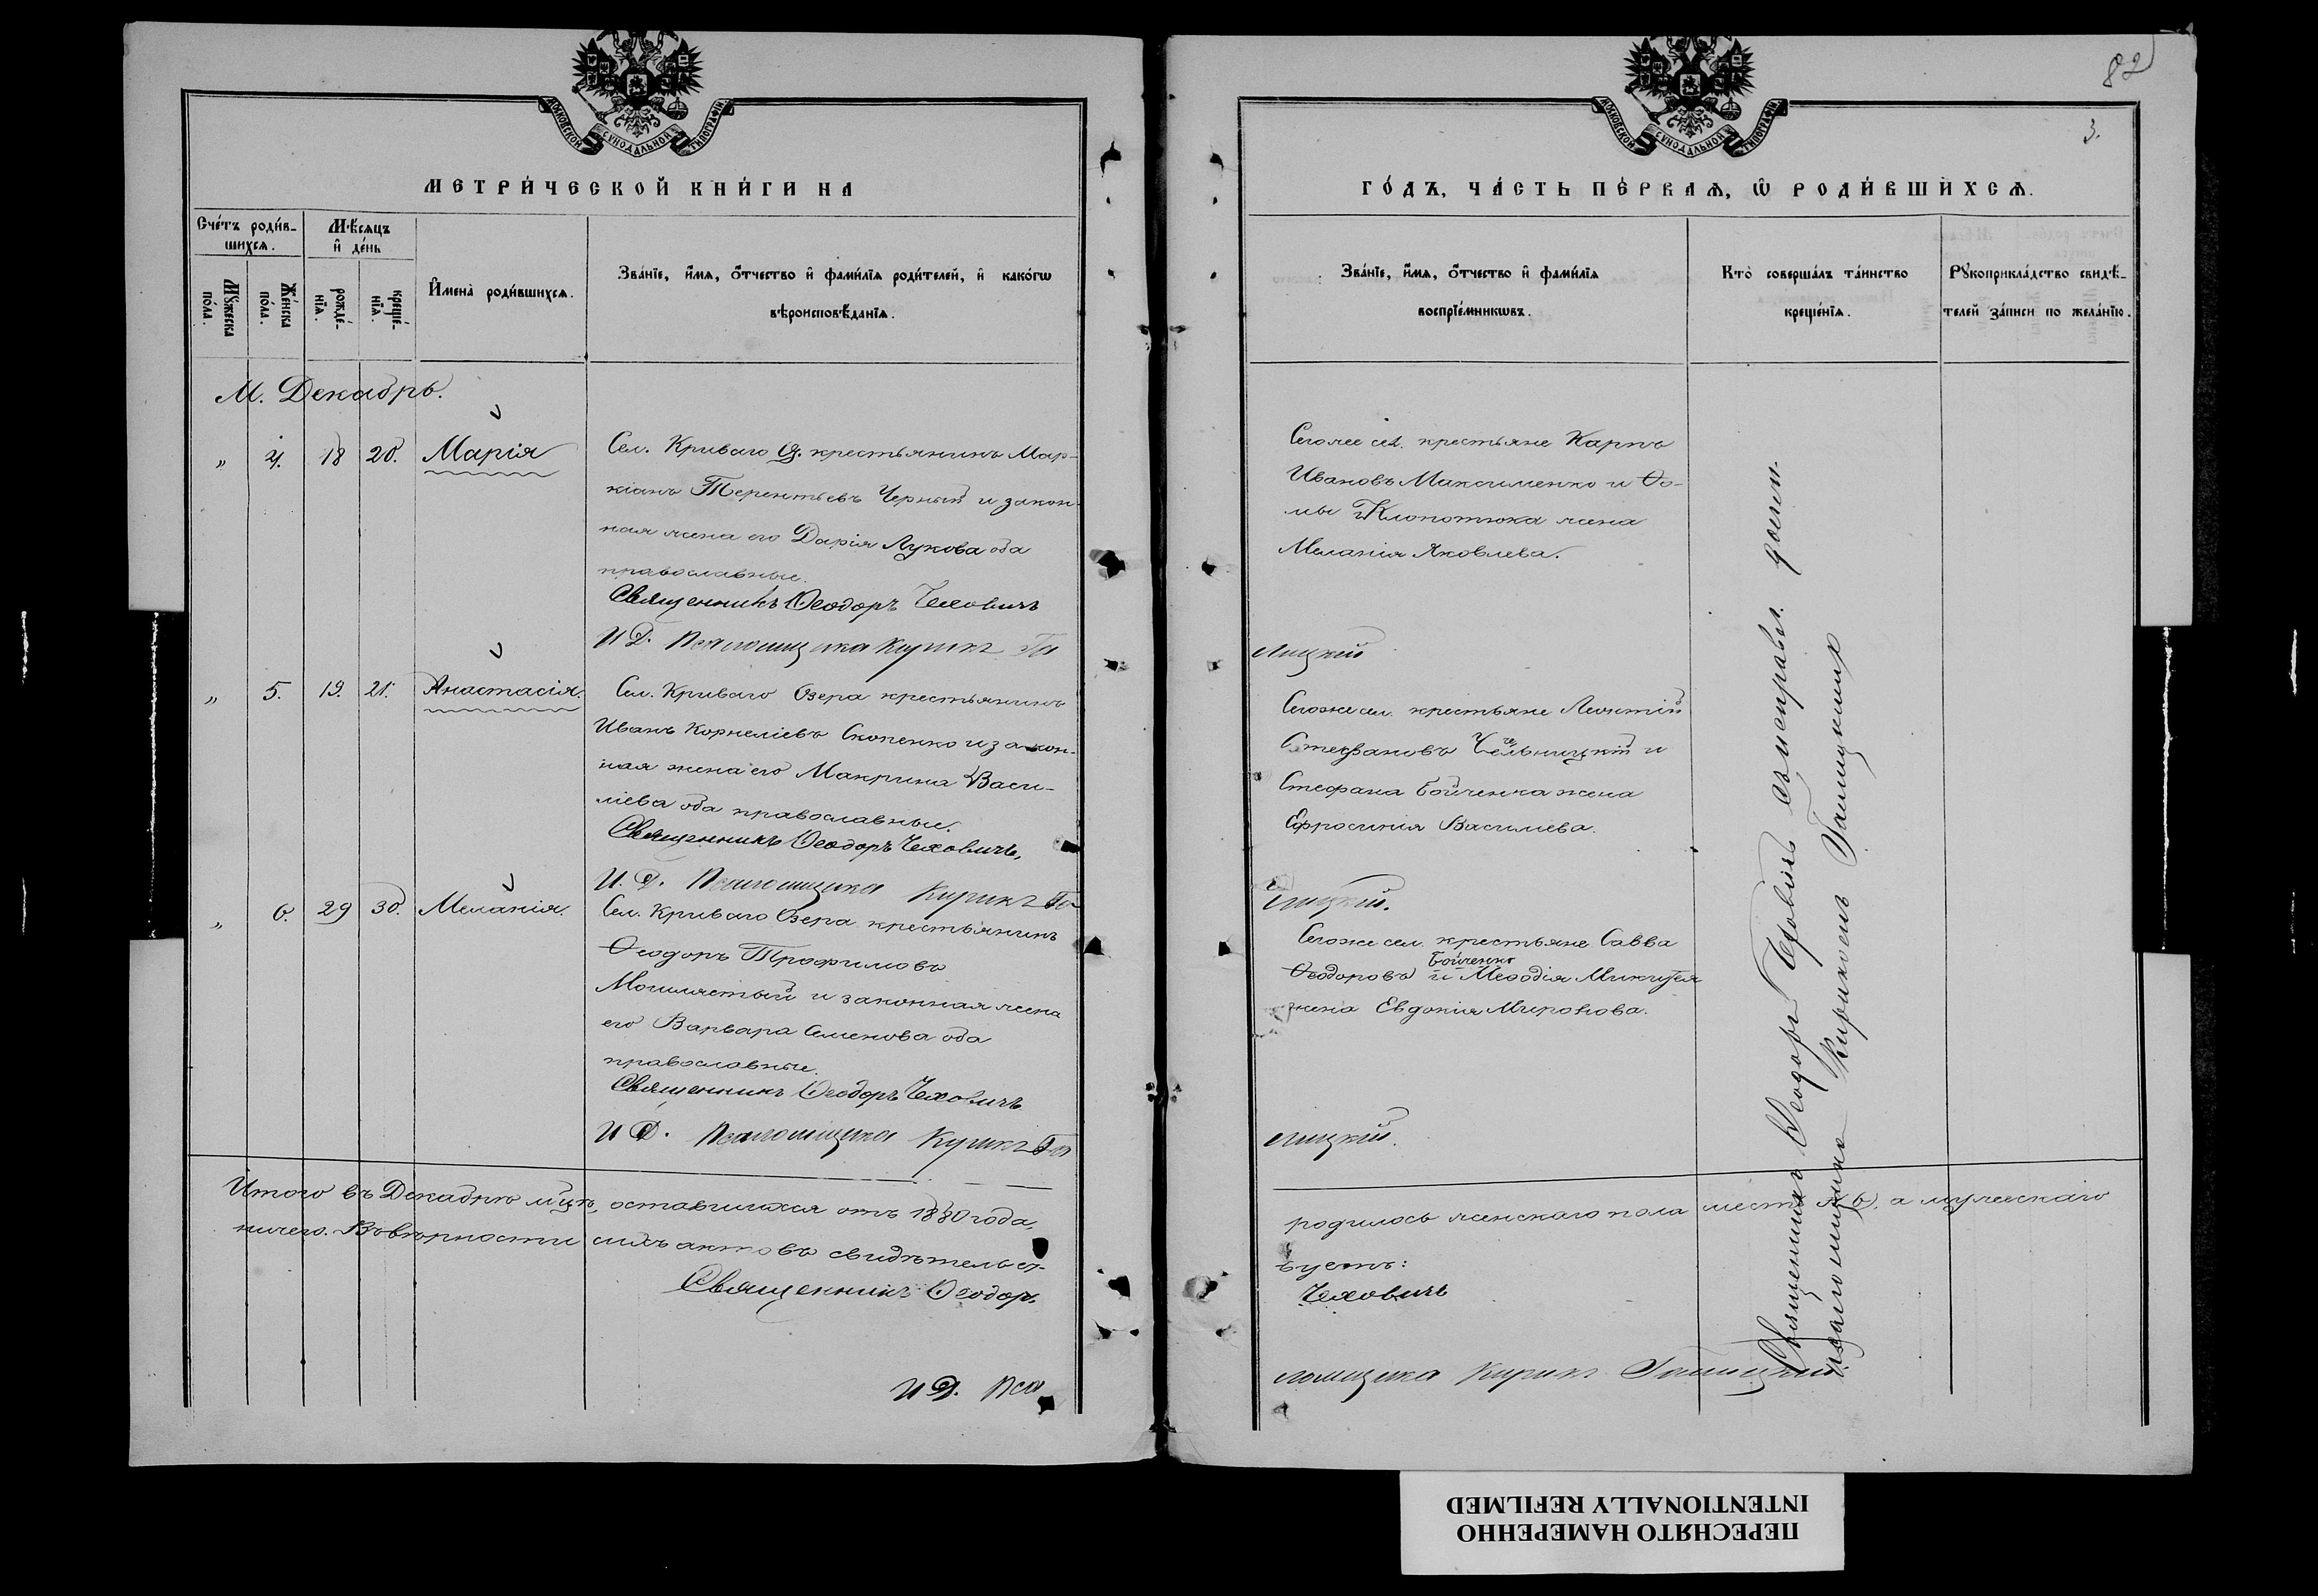 МОСКОВСКОЙ СѴНОДАЛЬНОЙ ТИПОГРАФІИ
МЕТРИ́ЧЕСКОЙ КНИ́ГИ НА
Сче́тъ роди́в-
шихсѧ.
Мꙋ́жеска по́ла.
Же́нска по́ла.
Мѣ́сѧцъ и҆ де́нь
рожде́-нїѧ.
креще́-нїѧ.
И҆мена̀ роди́вшихсѧ.
Зва́нїе, и҆́мѧ, ѻ҆́тчество и҆ фами́лїѧ роди́телей, и҆ како́гѡ
вѣроисповѣ́данїѧ.
М. Декабрь.
„ 4. 18 20. Марія
Сел. Криваго О. крестьянинъ Мар-
кіанъ Терентьевъ Черный и закон-
ная жена его Дарія Лукова оба
православные.
Священникъ Ѳеодоръ Чеховичъ
И Д. Псаломщика Кирикъ Га
„ 5. 19. 21. Анастасія.
Сел. Криваго Озера крестьянинъ
Иванъ Корнеліевъ Скопенко и закон-
ная жена его Макрина Васи-
ліева оба православные.
Священникъ Ѳеодоръ Чеховичъ,
И. Д. Псаломщика Кирикъ Га
„ 6. 29 30. Меланія.
Сел. Криваго Озера крестьянинъ
Ѳеодоръ Трофимовъ
и законная жена
его Варвара Семенова оба
православные.
Священникъ Ѳеодоръ Чеховичъ
И Д. Псаломщика Кирикъ Га
Итого въ Декабрѣ мцѣ, оставшихся отъ 1880 года,
ничего. Въ вѣрности сихъ актовъ свидѣтельст-
Священникъ Ѳеодоръ
И Д. Пса
82
3.
МОСКОВСКОЙ СѴНОДАЛЬНОЙ ТИПОГРАФІИ
ГО́ДЪ, ЧА́СТЬ ПЕ́РВАѦ, Ѡ҆ РОДИ́ВШИХСѦ.
Зва́нїе, и҆́мѧ, ѻ҆́тчество и҆ фами́лїѧ
воспрїе́мникѡвъ.
Кто̀ соверша́лъ та́инство
креще́нїѧ.
Рꙋкоприкла́дство свидѣ́-
телей за́писи по жела́нїю.
Сегоже сел. крестьяне Карпъ
Ивановъ Максименко и Ѳо-
мы Клопотюка жена
Меланія Яковлева.
лицкій
Сегоже сел. крестьяне Леонтій
Стефановъ и
Стефана Бойченка жена
Ефросинія Василіева.
лицкій.
Сегоже сел. крестьяне Савва
Ѳеодоровъ Бойченко и Меѳодія
жена Евдокія Миронова.
лицкій.
Священникъ Ѳеодоръ Чеховичъ съ исправл. долж.
псаломщика Кирикомъ Галицкимъ
родилось женскаго пола шесть (6), а мужескаго
вуетъ:
Чеховичъ
ломщика Кирикъ Галицкій.
ПЕРЕСНЯТО НАМЕРЕННО
INTENTIONALLY REFILMED